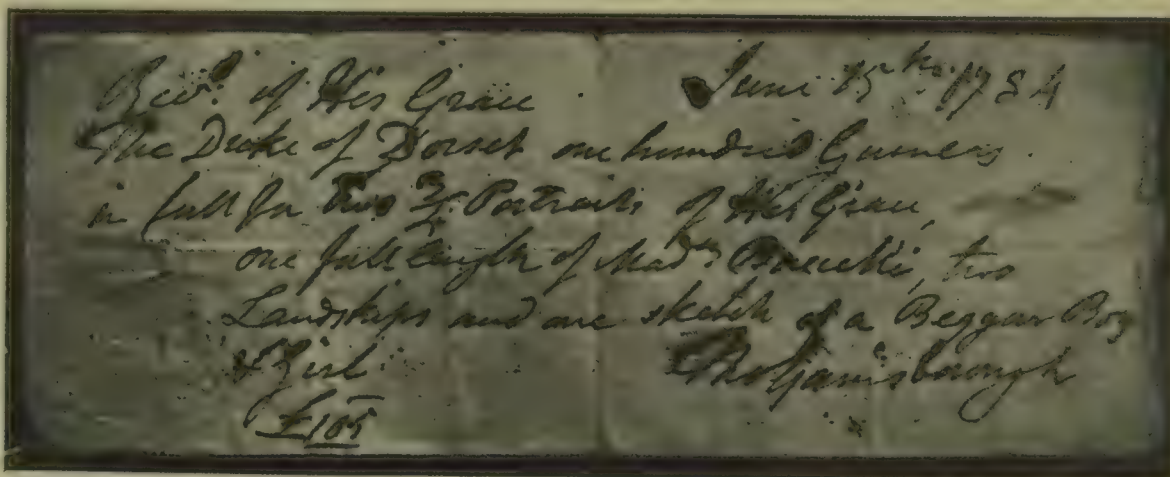 Recd. of His Grace June 15th. 1784
The Duke of Dorset one hundred Guineas
in full for two 3/4 Portraits of His Grace,
one full length of Madm Baccelli, two
Landskips and one sketch of a Beggar Boy
& Girl.
£105 Tho Gainsborough